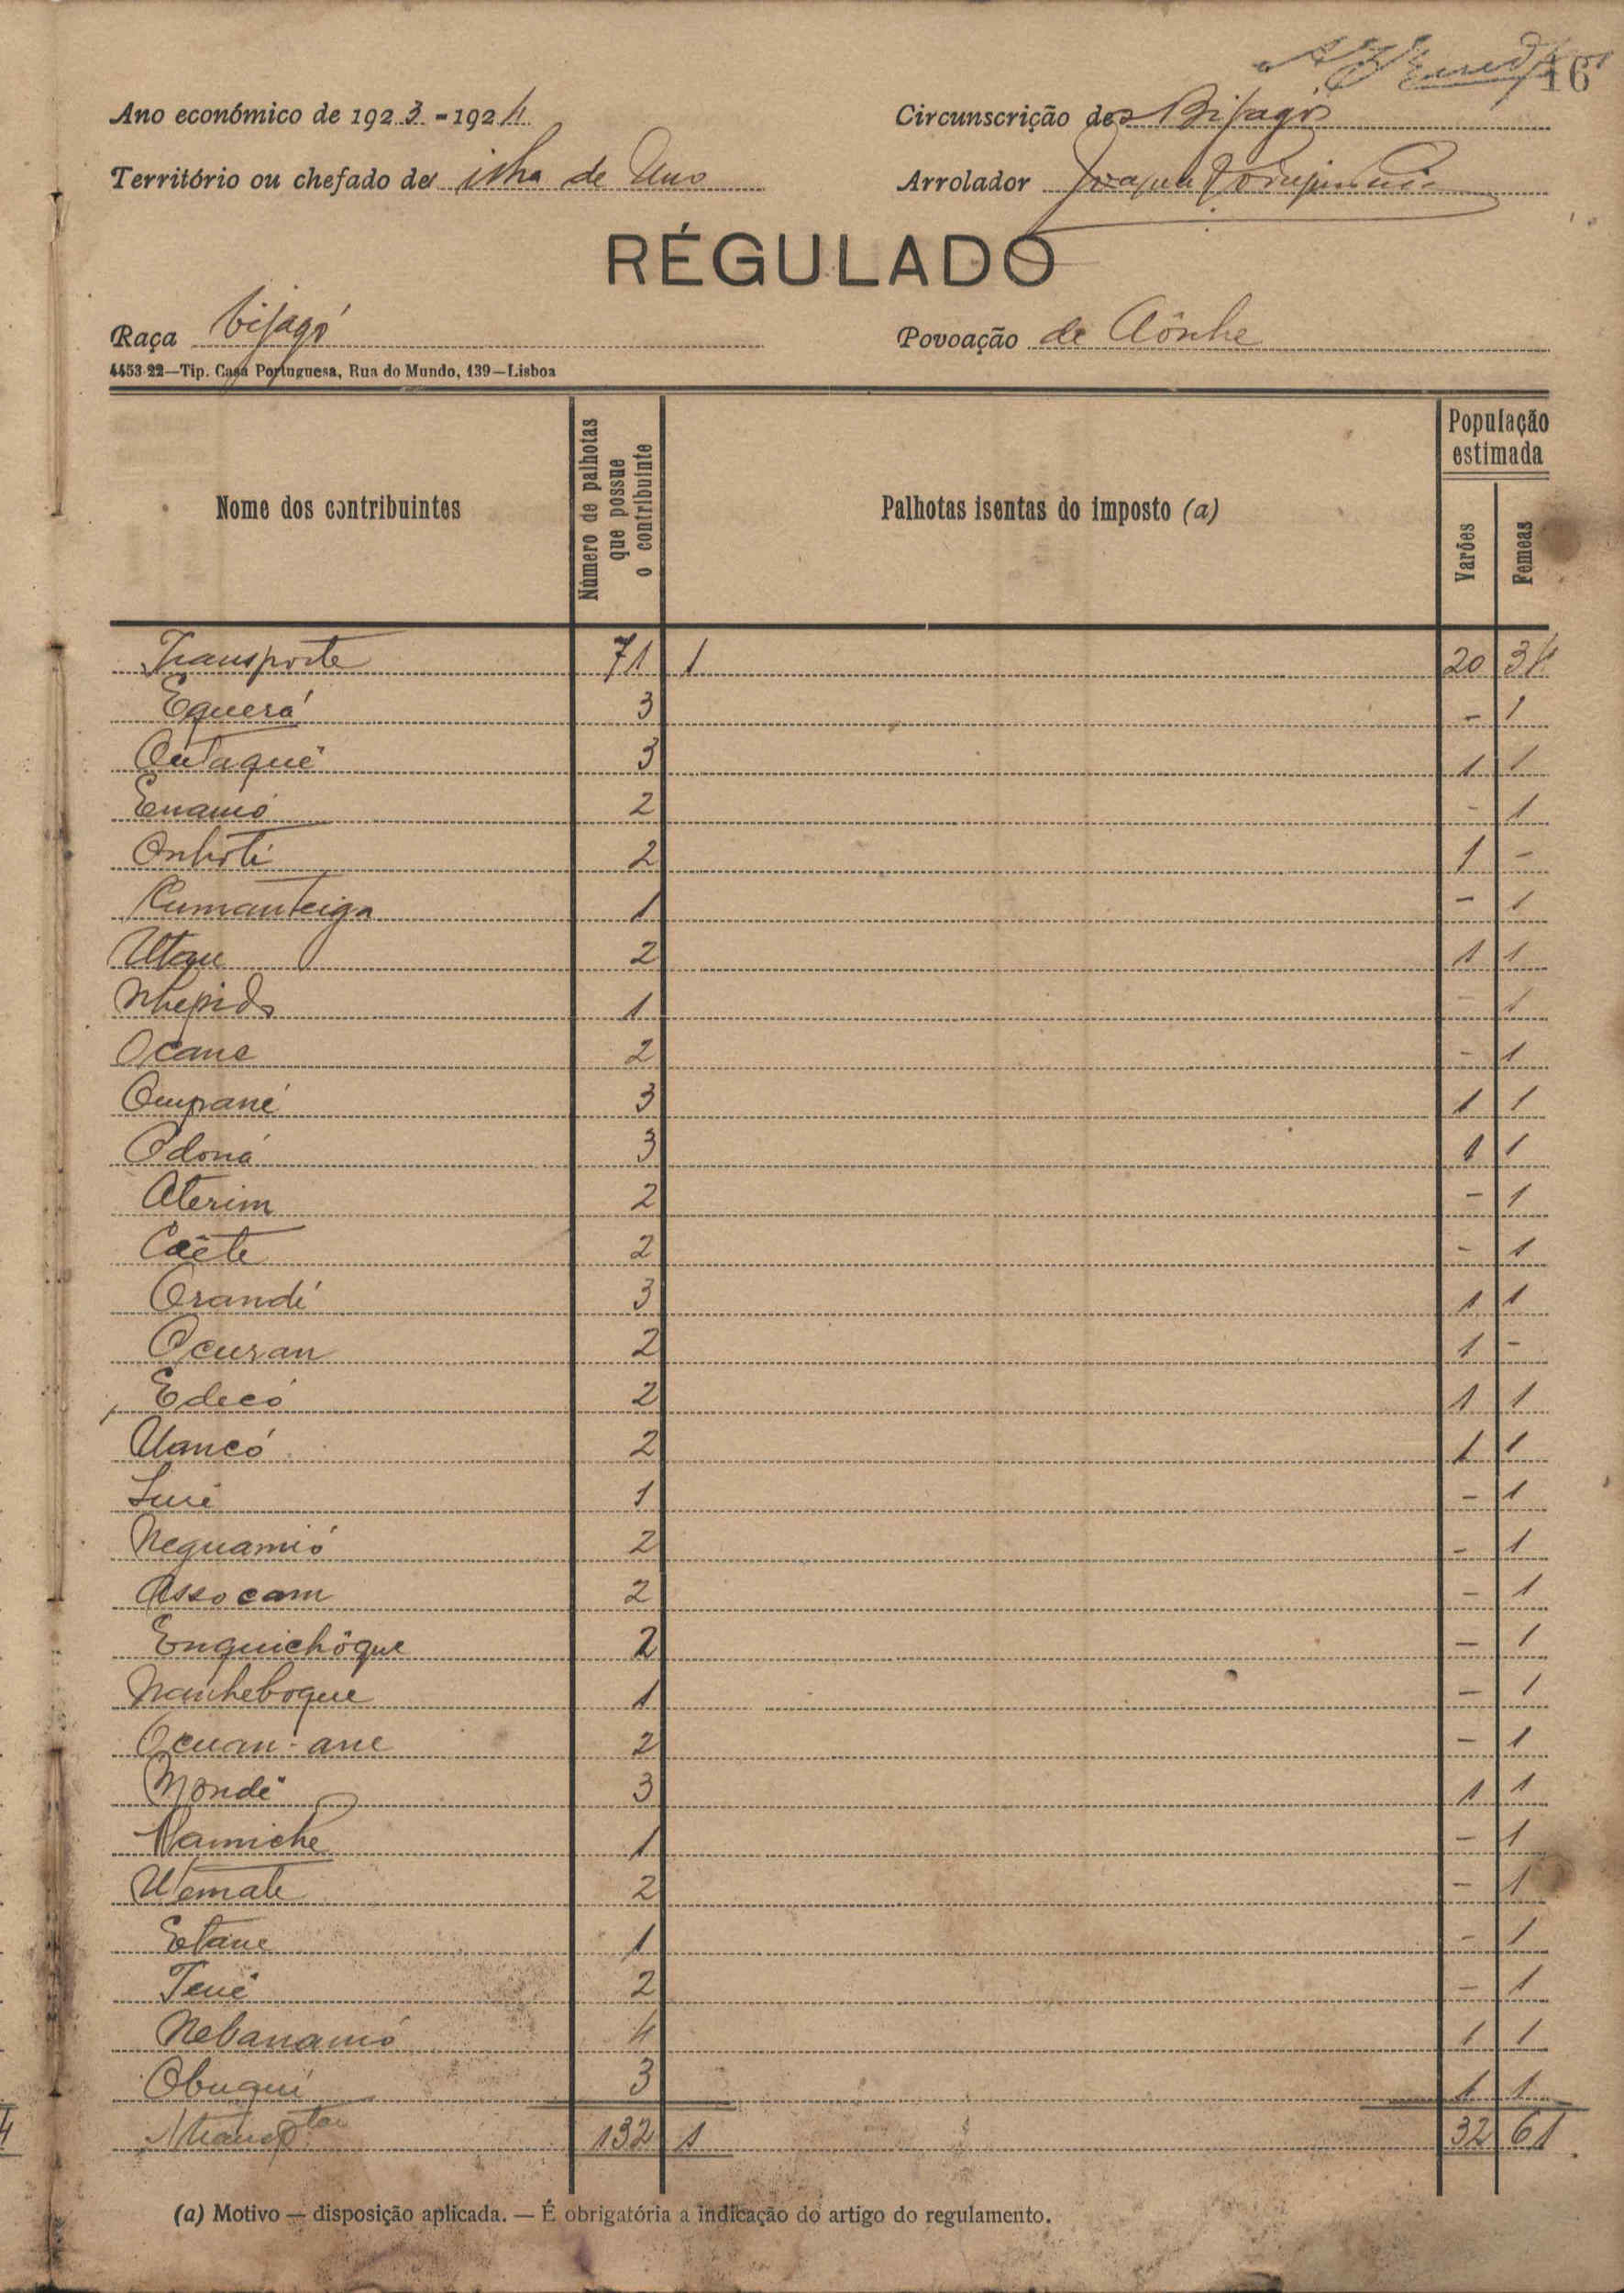 16
Ano económico de 1923-1924 Circunscrição dos Bijagós
Território ou chefado de ilha de Uno Arrolador
RÉGULADO
Raça bijagó Povoação de Aônhe
4453-22—Tip. Casa Portuguesa, Rua do Mundo, 139—Lisboa
Nome dos contribuintes Número de palhotas que possue o contribuinte Palhotas isentas do imposto (a) População estimada Varões Femeas
Transporte 71 1 20 34
Equerá 3 - 1
Cutaquê 3 1 1
Enamó 2 - 1
Onhoti 2 1 -
Cumanteiga 1 - 1
Utequ 2 1 1
Nhepido 1 - 1
Ocane 2 - 1
Oumpané 3 1 1
Odoná 3 1 1
Aterim 2 - 1
Caête 2 - 1
Orandé 3 1 1
Ocuran 2 1 -
Edecó 2 1 1
Uancó 2 1 1
1 - 1
Neguamió 2 - 1
Assocam 2 - 1
Enquichôque 2 - 1
Nanheboque 1 - 1
Ocuam-ane 2 - 1
Nondê 3 1 1
Namiche 1 - 1
Uemate 2 - 1
Etane 1 - 1
Tenê 2 - 1
Nebanamó 4 1 1
Obuqui 3 1 1
A transptar 132 1 32 61
(a) Motivo — disposição aplicada. — É obrigatória a indicação do artigo do regulamento.